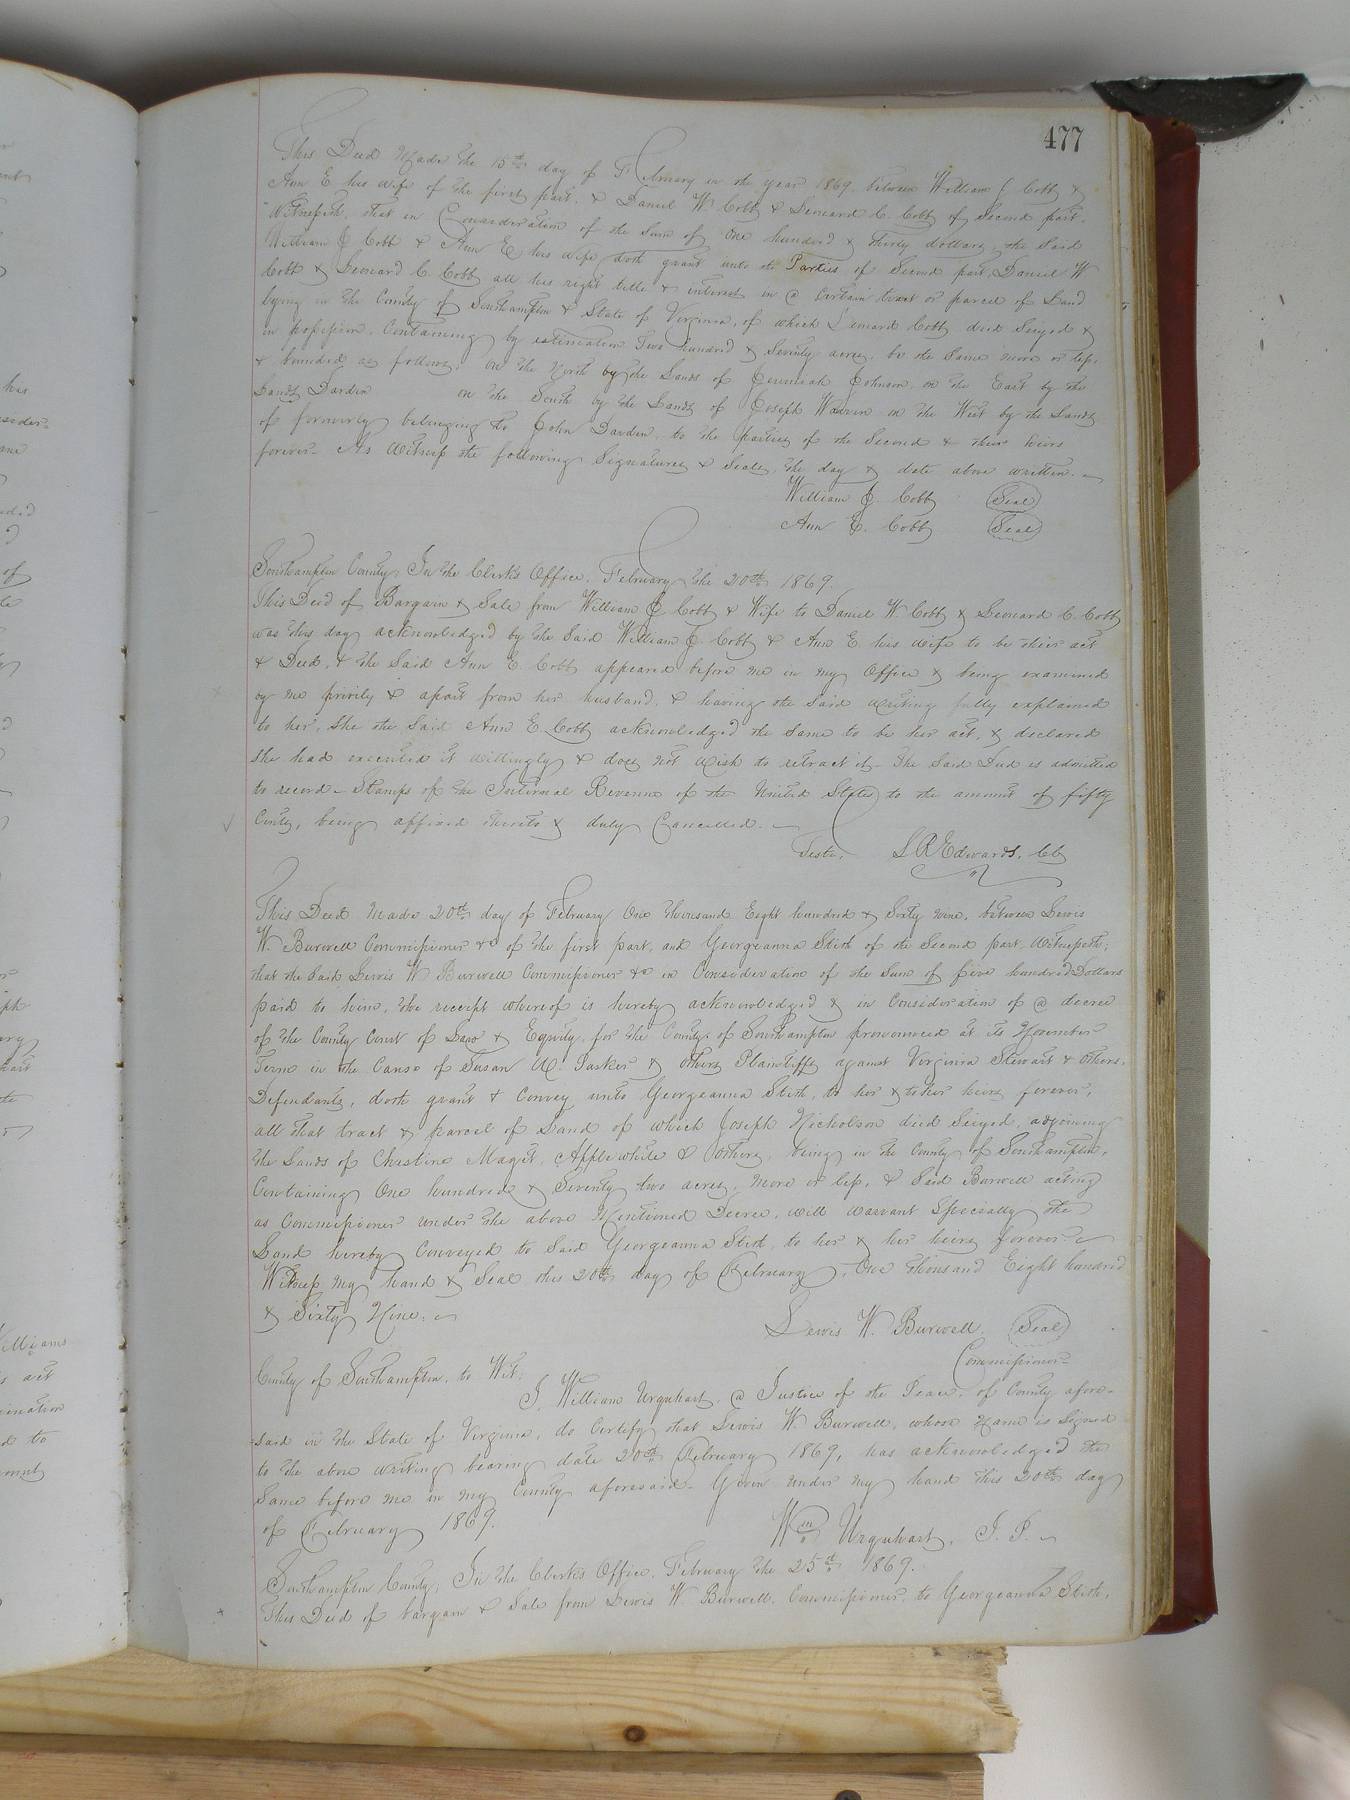 477
This Deed Made the 15th day of February in the year 1869. between William J Cobb &
Ann E his wife of the first part, & Daniel W Cobb & Leonard C. Cobb of Second part.
Witnesseth, that in Consideration of the Sum of One hundred & thirty dollars, the Said
William J Cobb & Ann E his wife doth grant unto the Parties of Second part, Daniel W
Cobb & Leonard C. Cobb all his right title & interest in a Certain tract or parcel of Land
lying in the County of Southampton & State of Virginia, of which Leonard Cobb died Seized &
in possession. Containing by estimation Two hundred & Seventy acres, be the Same more or less,
& bounded as follows, on the North by the Lands of Jeremiah Johnson, on the East by the
Lands Darden on the South by the Lands of Joseph Warren on the West by the Lands
of formerly belonging to John Darden, to the parties of the Second & their heirs
forever. As Witness the following Signatures & Seals, the day & date above written.
William J. Cobb Seal
Ann E. Cobb Seal
Southampton County, In the Clerk's Office, February the 20th 1869.
This Deed of Bargain & Sale from William J Cobb & Wife to Daniel W. Cobb & Leonard C. Cobb
was this day acknowledged by the Said William J. Cobb & Ann E. his wife to be their act
& Deed, & the Said Ann E. Cobb appeared before me in my Office & being examined
by me privily & apart from her husband, & having the Said writing fully explained
to her, She the Said Ann E. Cobb acknowledged the Same to be her act, & declared
She had executed it willingly & does not wish to retract it. The Said Deed is admitted
to record - Stamps of the Internal Revenue of the United States to the amount of fifty
Cents, being affixed thereto & duly Cancelled.
Teste, L R Edwards, Clk
This Deed Made 20th day of February One thousand Eight hundred & Sixty nine, between Lewis
W. Burwell Commissioner &c of the first part, and Georgeanna Stith of the Second part, Witnesseth;
that the Said Lewis W Burwell Commissioner &c in Consideration of the Sum of five hundred Dollars
paid to him, the receipt whereof is hereby acknowledged & in Consideration of a decree
of the County Court of Law & Equity, for the County of Southampton pronounced at its November
Term in the Cause of Susan M. Parker & others Plaintiffs against Virginia Stewart & others.
Defendants, doth grant & Convey unto Georgeanna Stith, to her & to her heirs forever,
all that tract & parcel of Land of which Joseph Nicholson died Seized, adjoining
the Lands of Christine Maget, Applewhite & others, being in the County of Southampton,
Containing One hundred & Seventy two acres, More or less, & Said Burwell acting
as Commissioner under the above Mentioned Decree, will warrant Specially the
Land hereby Conveyed to Said Georgeanna Stith, to her & her heirs forever
Witness My hand & Seal this 20th day of February, One thousand Eight hundred
& Sixty Nine.
Lewis W. Burwell. Seal
Commissioner
County of Southampton, to Wit:
I, William Urquhart, a Justice of the Peace, of County afore-
said in the State of Virginia, do Certify that Lewis W. Burwell, whose Name is Signed
to the above writing bearing date 20th February 1869, has acknowledged the
Same before me in my County aforesaid. Given under my hand this 20th day
of February 1869.
Wm Urquhart, J. P.
Southampton County, In the Clerk's Office, February the 25th 1869.
This Deed of bargain & Sale from Lewis W Burwell, Commissioner, to Georgeanna Stith,